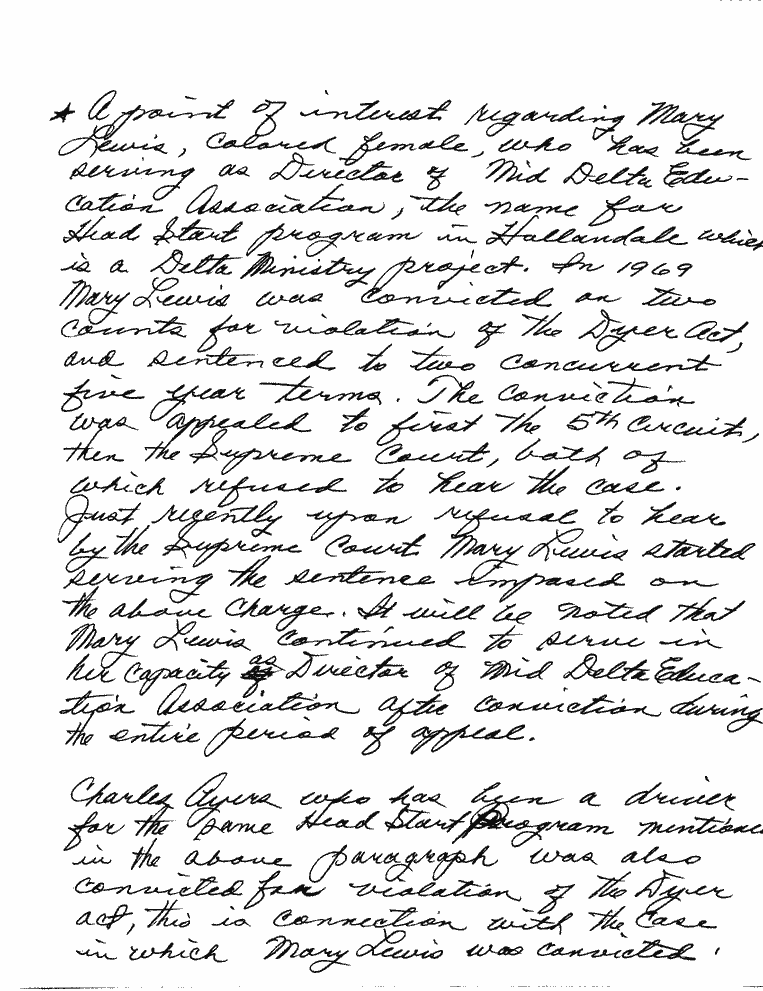 ★ A point of interest regarding Mary
Lewis, colored female, who has been
serving as Director of Mid Delta Edu-
cation Association, the name for
Head Start program in Hallandale which
is a Delta Ministry project. In 1969
Mary Lewis was convicted on two
counts for violation of the Dyer Act,
and sentenced to two concurrent
five year terms. The conviction
was appealed to first the 5th Circuit,
then the Supreme Court, both of
which refused to hear the case.
Just recently upon refusal to hear
by the Supreme Court Mary Lewis started
serving the sentence imposed on
the above charge. It will be noted that
Mary Lewis continued to serve in
her capacity as Director of Mid Delta Educa-
tion Association after conviction during
the entire period of appeal.
Charles Ayers who has been a driver
for the same Head Start Program mentioned
in the above paragraph was also
convicted for violation of the Dyer
act, this is connection with the case
in which Mary Lewis was convicted.